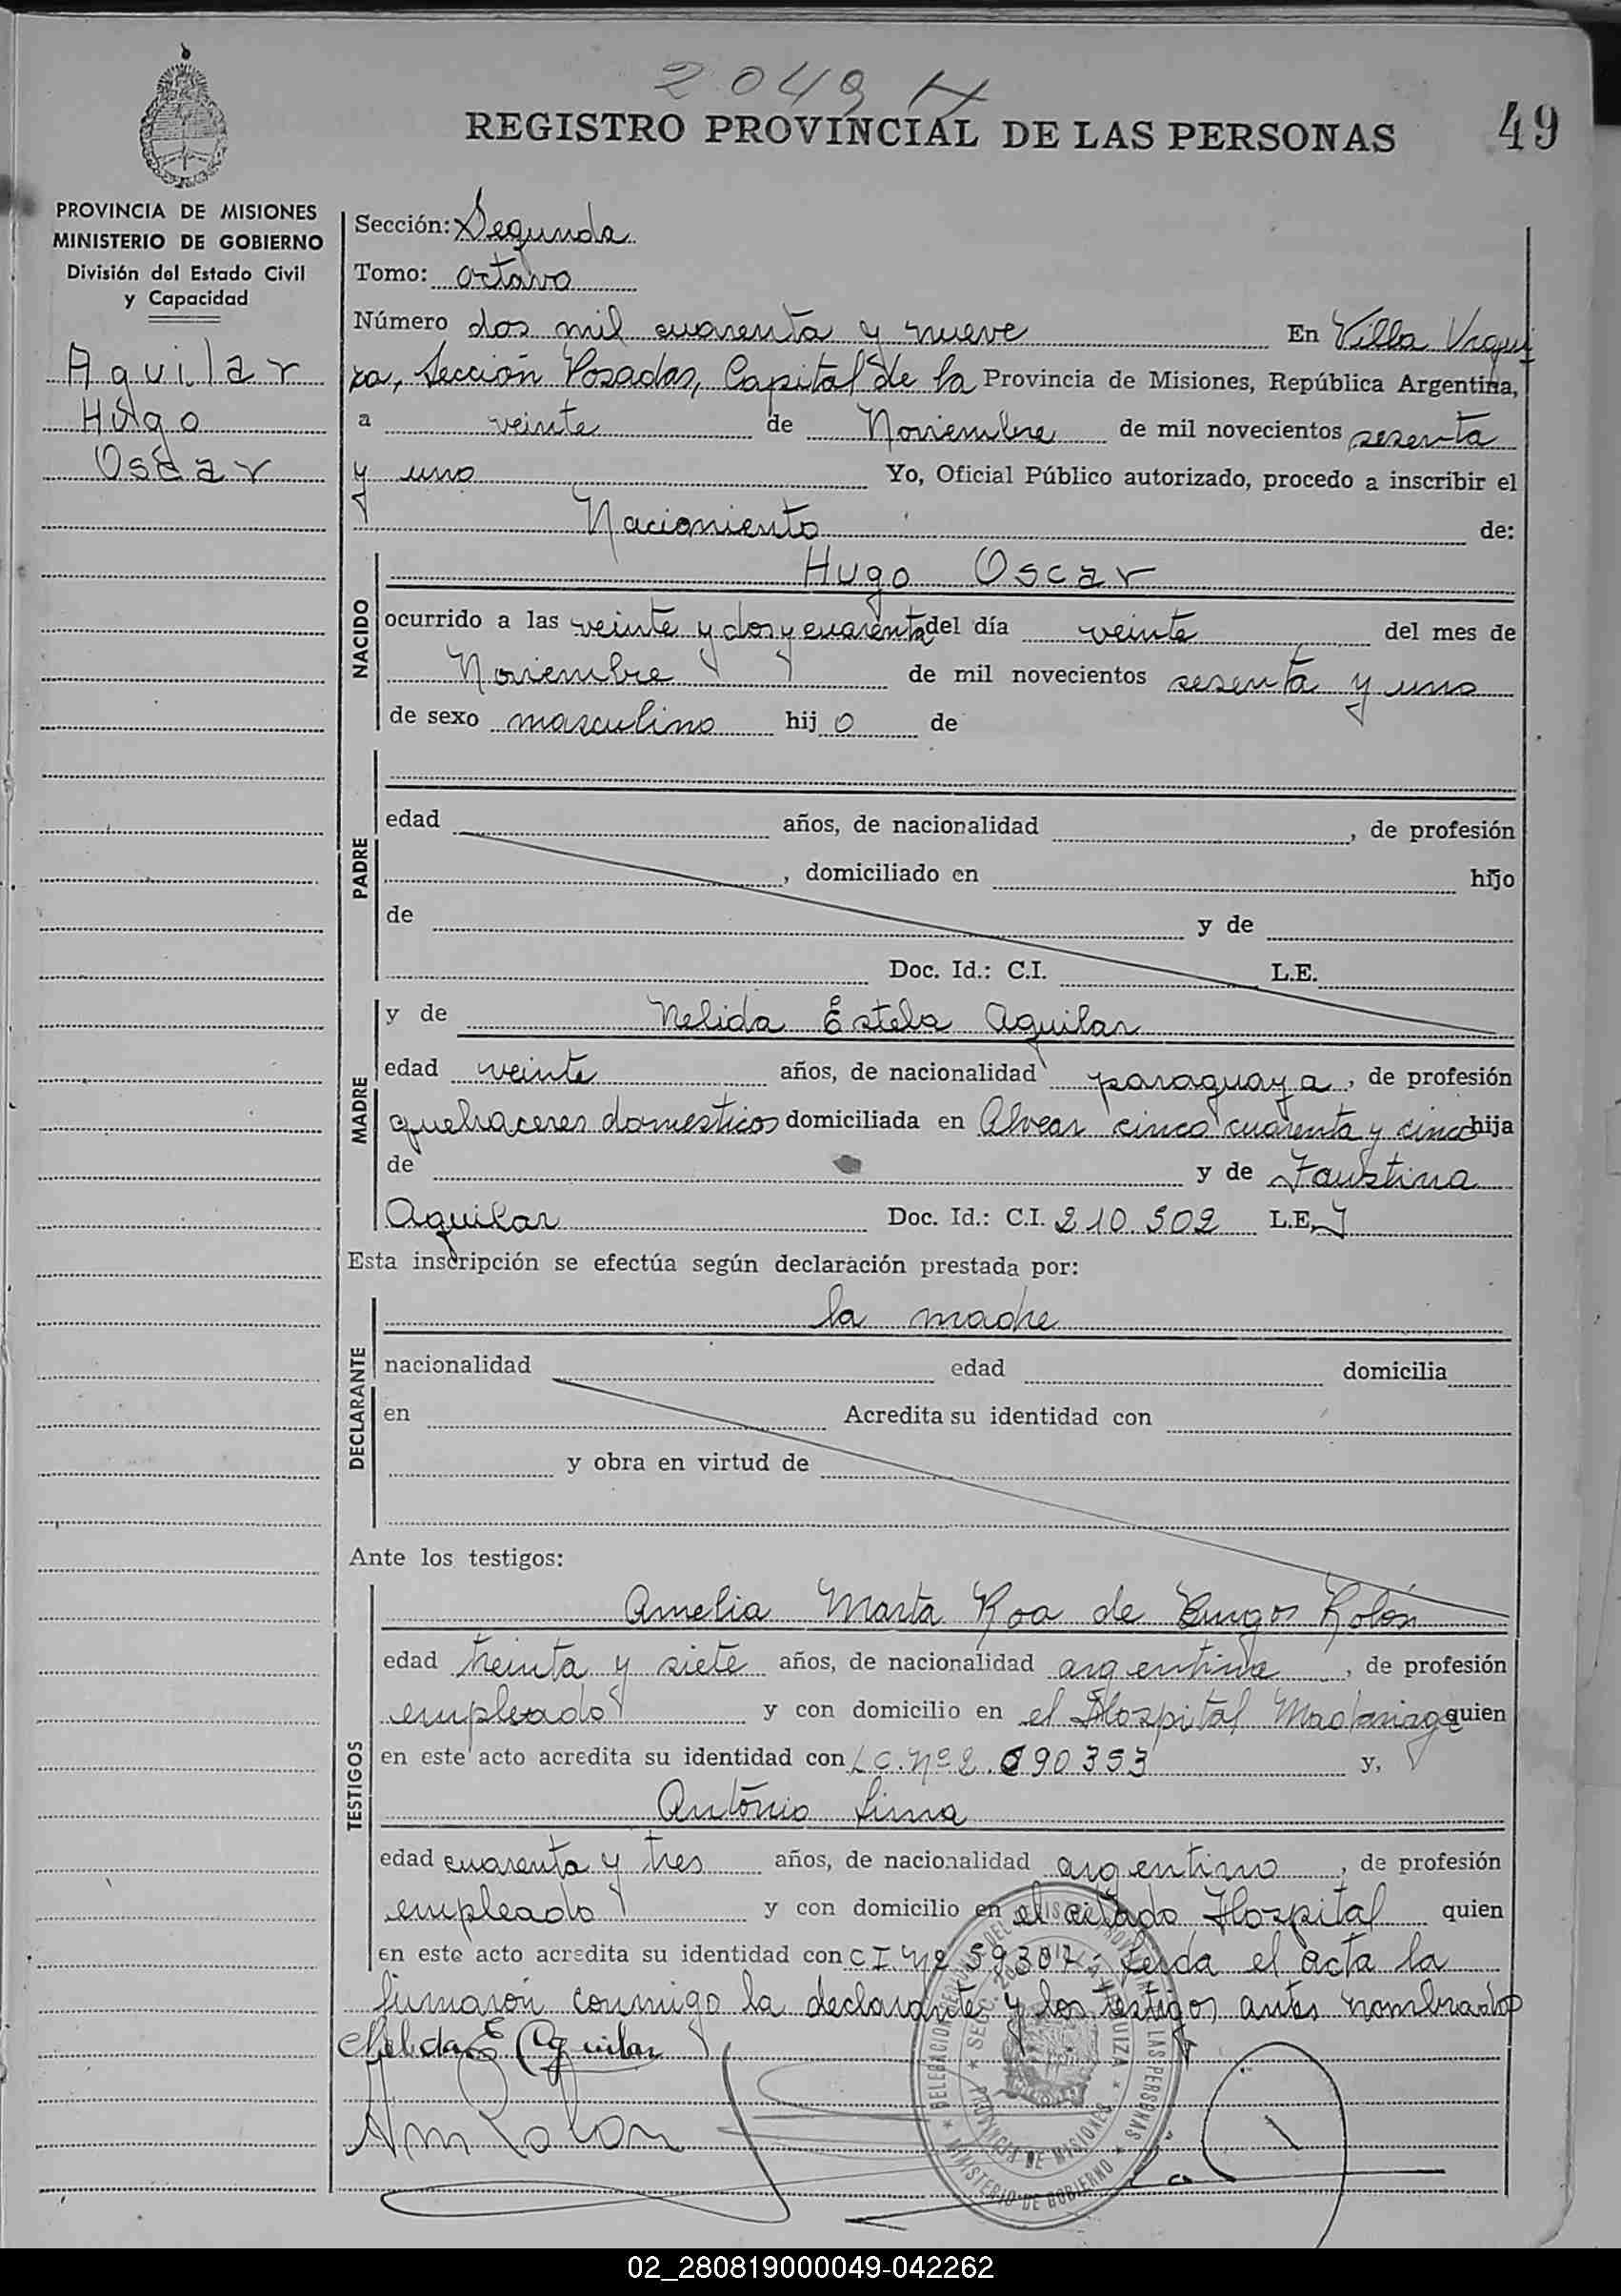 2049 H
REGISTRO PROVINCIAL DE LAS PERSONAS
49
PROVINCIA DE MISIONES
MINISTERIO DE GOBIERNO
División del Estado Civil
y Capacidad
Aguilar
Hugo
Oscar
Sección: Segunda
Tomo: octavo
Número dos mil cuarenta y nueve En Villa Urqui
za, Sección Posadas, Capital de la Provincia de Misiones, República Argentina,
a veinte de Noviembre de mil novecientos sesenta
y uno Yo, Oficial Público autorizado, procedo a inscribir el
Nacimiento de:
NACIDO
Hugo Oscar
ocurrido a las veinte y dos y cuarenta del día veinte del mes de
Noviembre de mil novecientos sesenta y uno
de sexo masculino hijo de
PADRE
edad años, de nacionalidad , de profesión
, domiciliado en hijo
de y de
Doc. Id.: C.I. L.E.
MADRE
y de Nelida Estela Aguilar
edad veinte años, de nacionalidad paraguaya, de profesión
quehaceres domesticos domiciliada en Alvear cinco cuarenta y cinco hija
de y de Faustina
Aguilar Doc. Id.: C.I. 210.502 L.E.
Esta inscripción se efectúa según declaración prestada por:
DECLARANTE
la madre
nacionalidad edad domicilia
en Acredita su identidad con
y obra en virtud de
Ante los testigos:
TESTIGOS
Amelia Marta Roa de Burgos Rolón
edad treinta y siete años, de nacionalidad argentina, de profesión
empleado y con domicilio en el Hospital Madariaga quien
en este acto acredita su identidad con L C. Nº 2.690353 y,
Antonio Lima
edad cuarenta y tres años, de nacionalidad argentino, de profesión
empleado y con domicilio en el citado Hospital quien
en este acto acredita su identidad con C I Nº 59307. Leida el acta la
firmaron conmigo la declarante y los testigos antes nombrados
Nelida E Aguilar
AmRolon
MINISTERIO DE GOBIERNO
PROVINCIA DE MISIONES
02_280819000049-042262